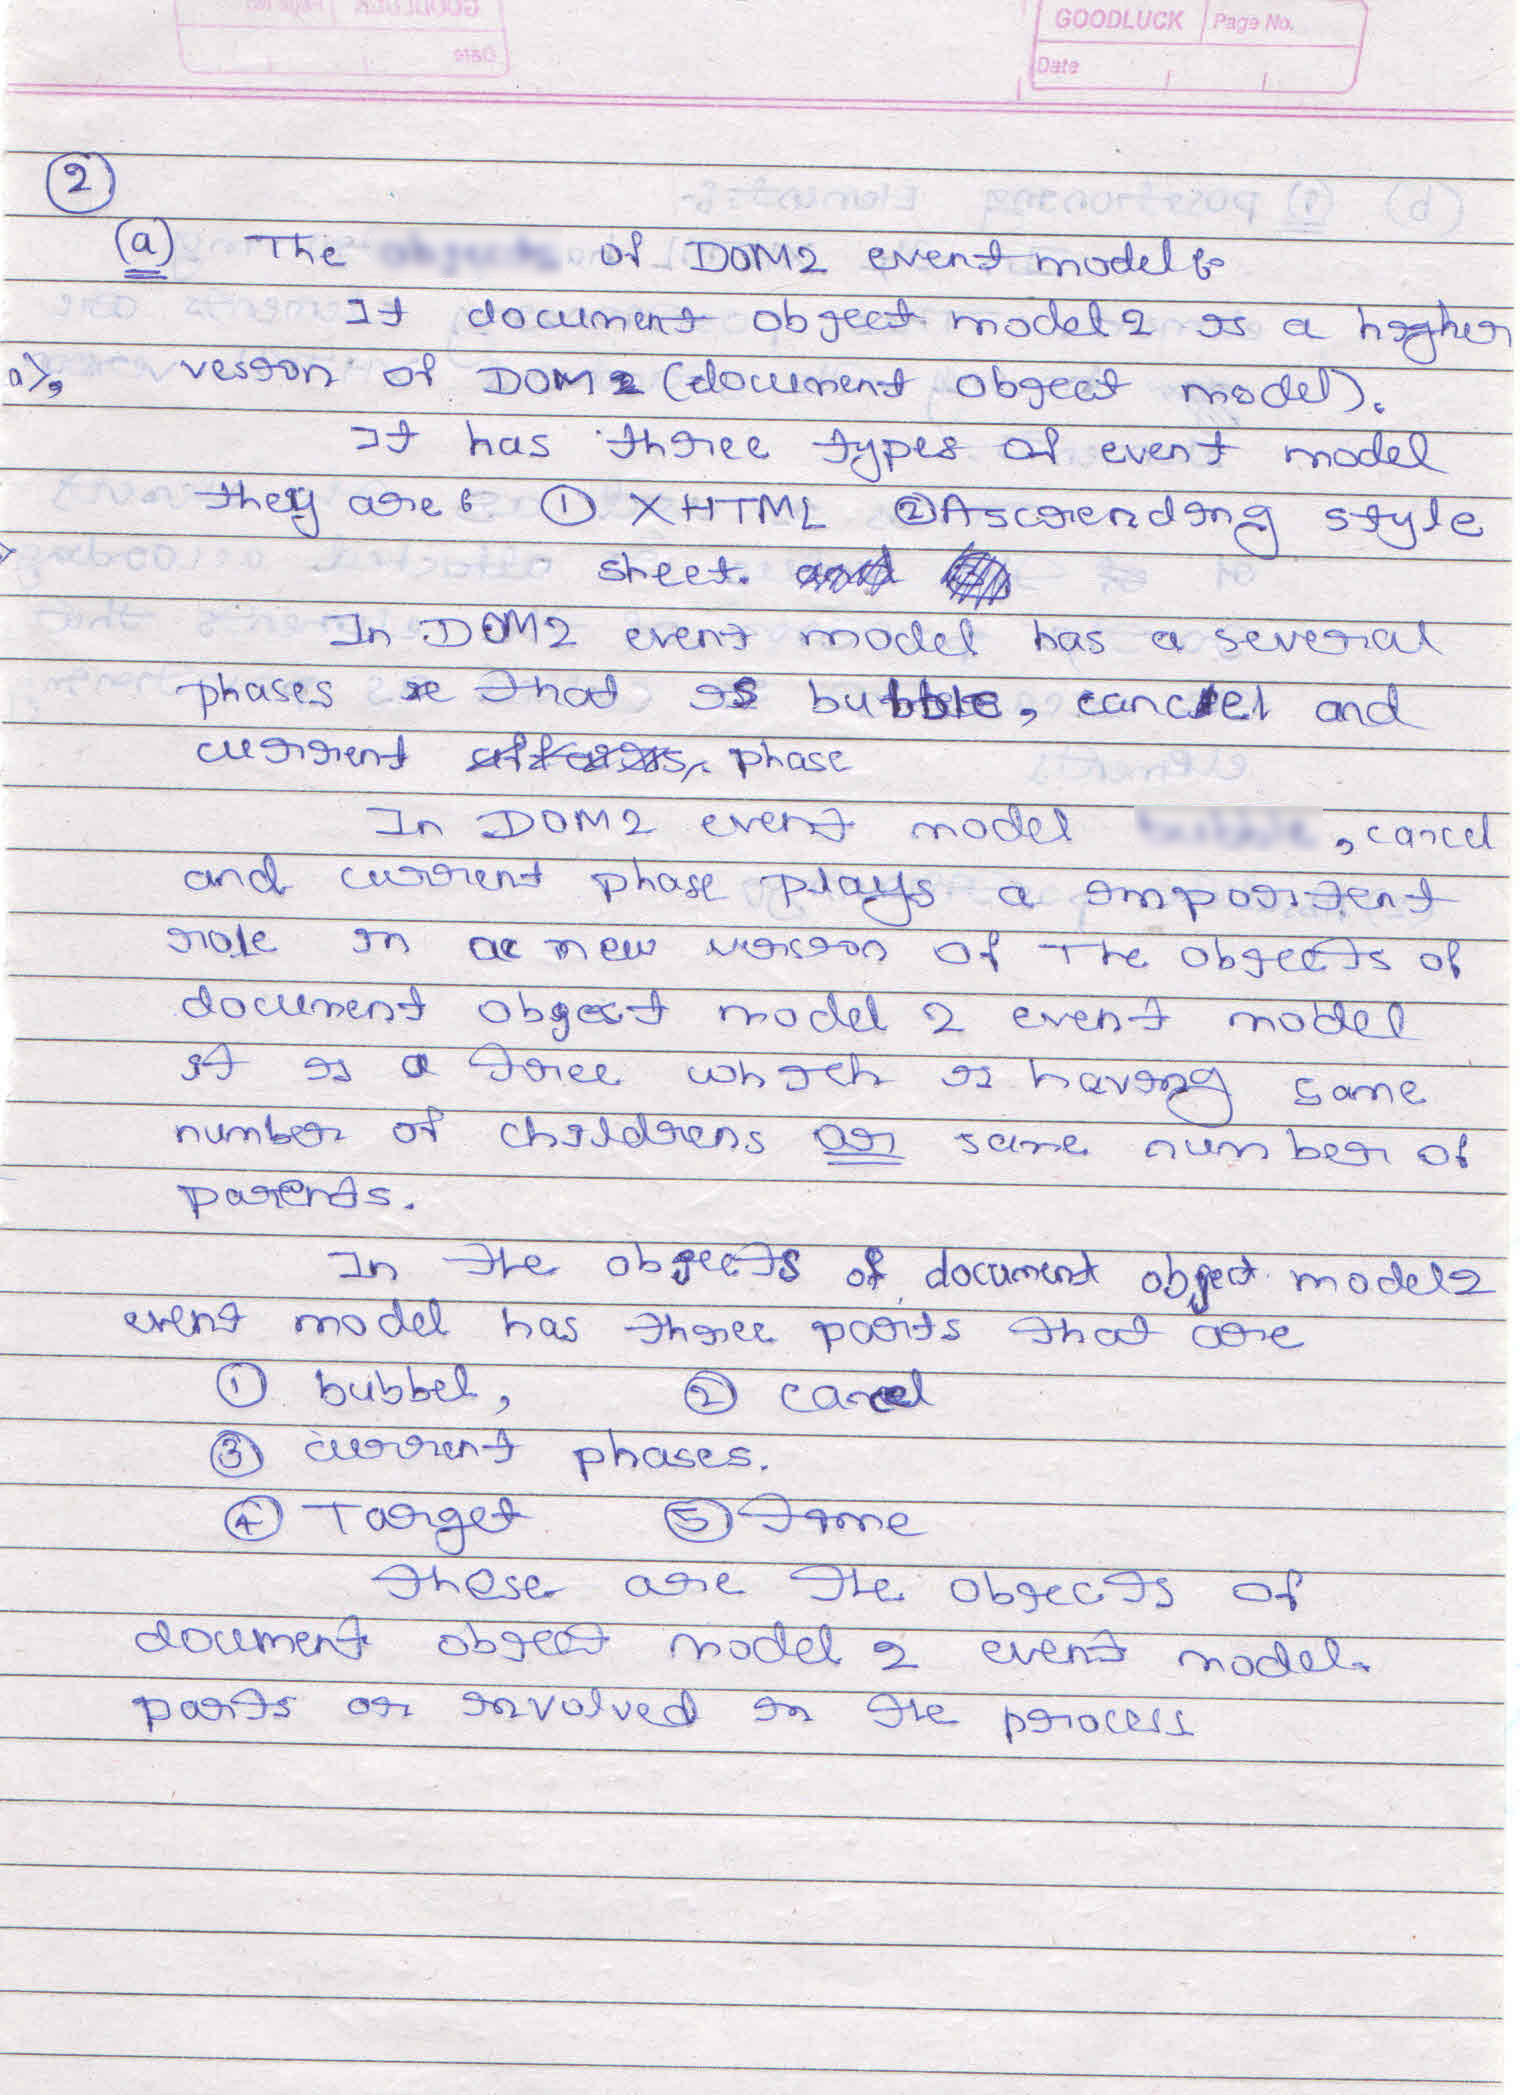 GOODLUCK Page No.
Date
2
(a) The of DOM2 event model :-
It document object model 2 is a higher
a), version of DOM2 (document object model).
It has three types of event model
they are : ① XHTML ② Ascrending style
sheet.
In DOM2 event model has a several
phases that is bubble, cancel and
current phase
In DOM2 event model , cancel
and current phase plays a importent
role in a new version of The objects of
document object model 2 event model
it is a tree which is having same
number of childrens or same number of
parents.
In the objects of document object model 2
event model has three parts that are
① bubbel, ② cancel
③ current phases.
④ Target ⑤ Time
These are the objects of
document object model 2 event model.
parts or involved in the process